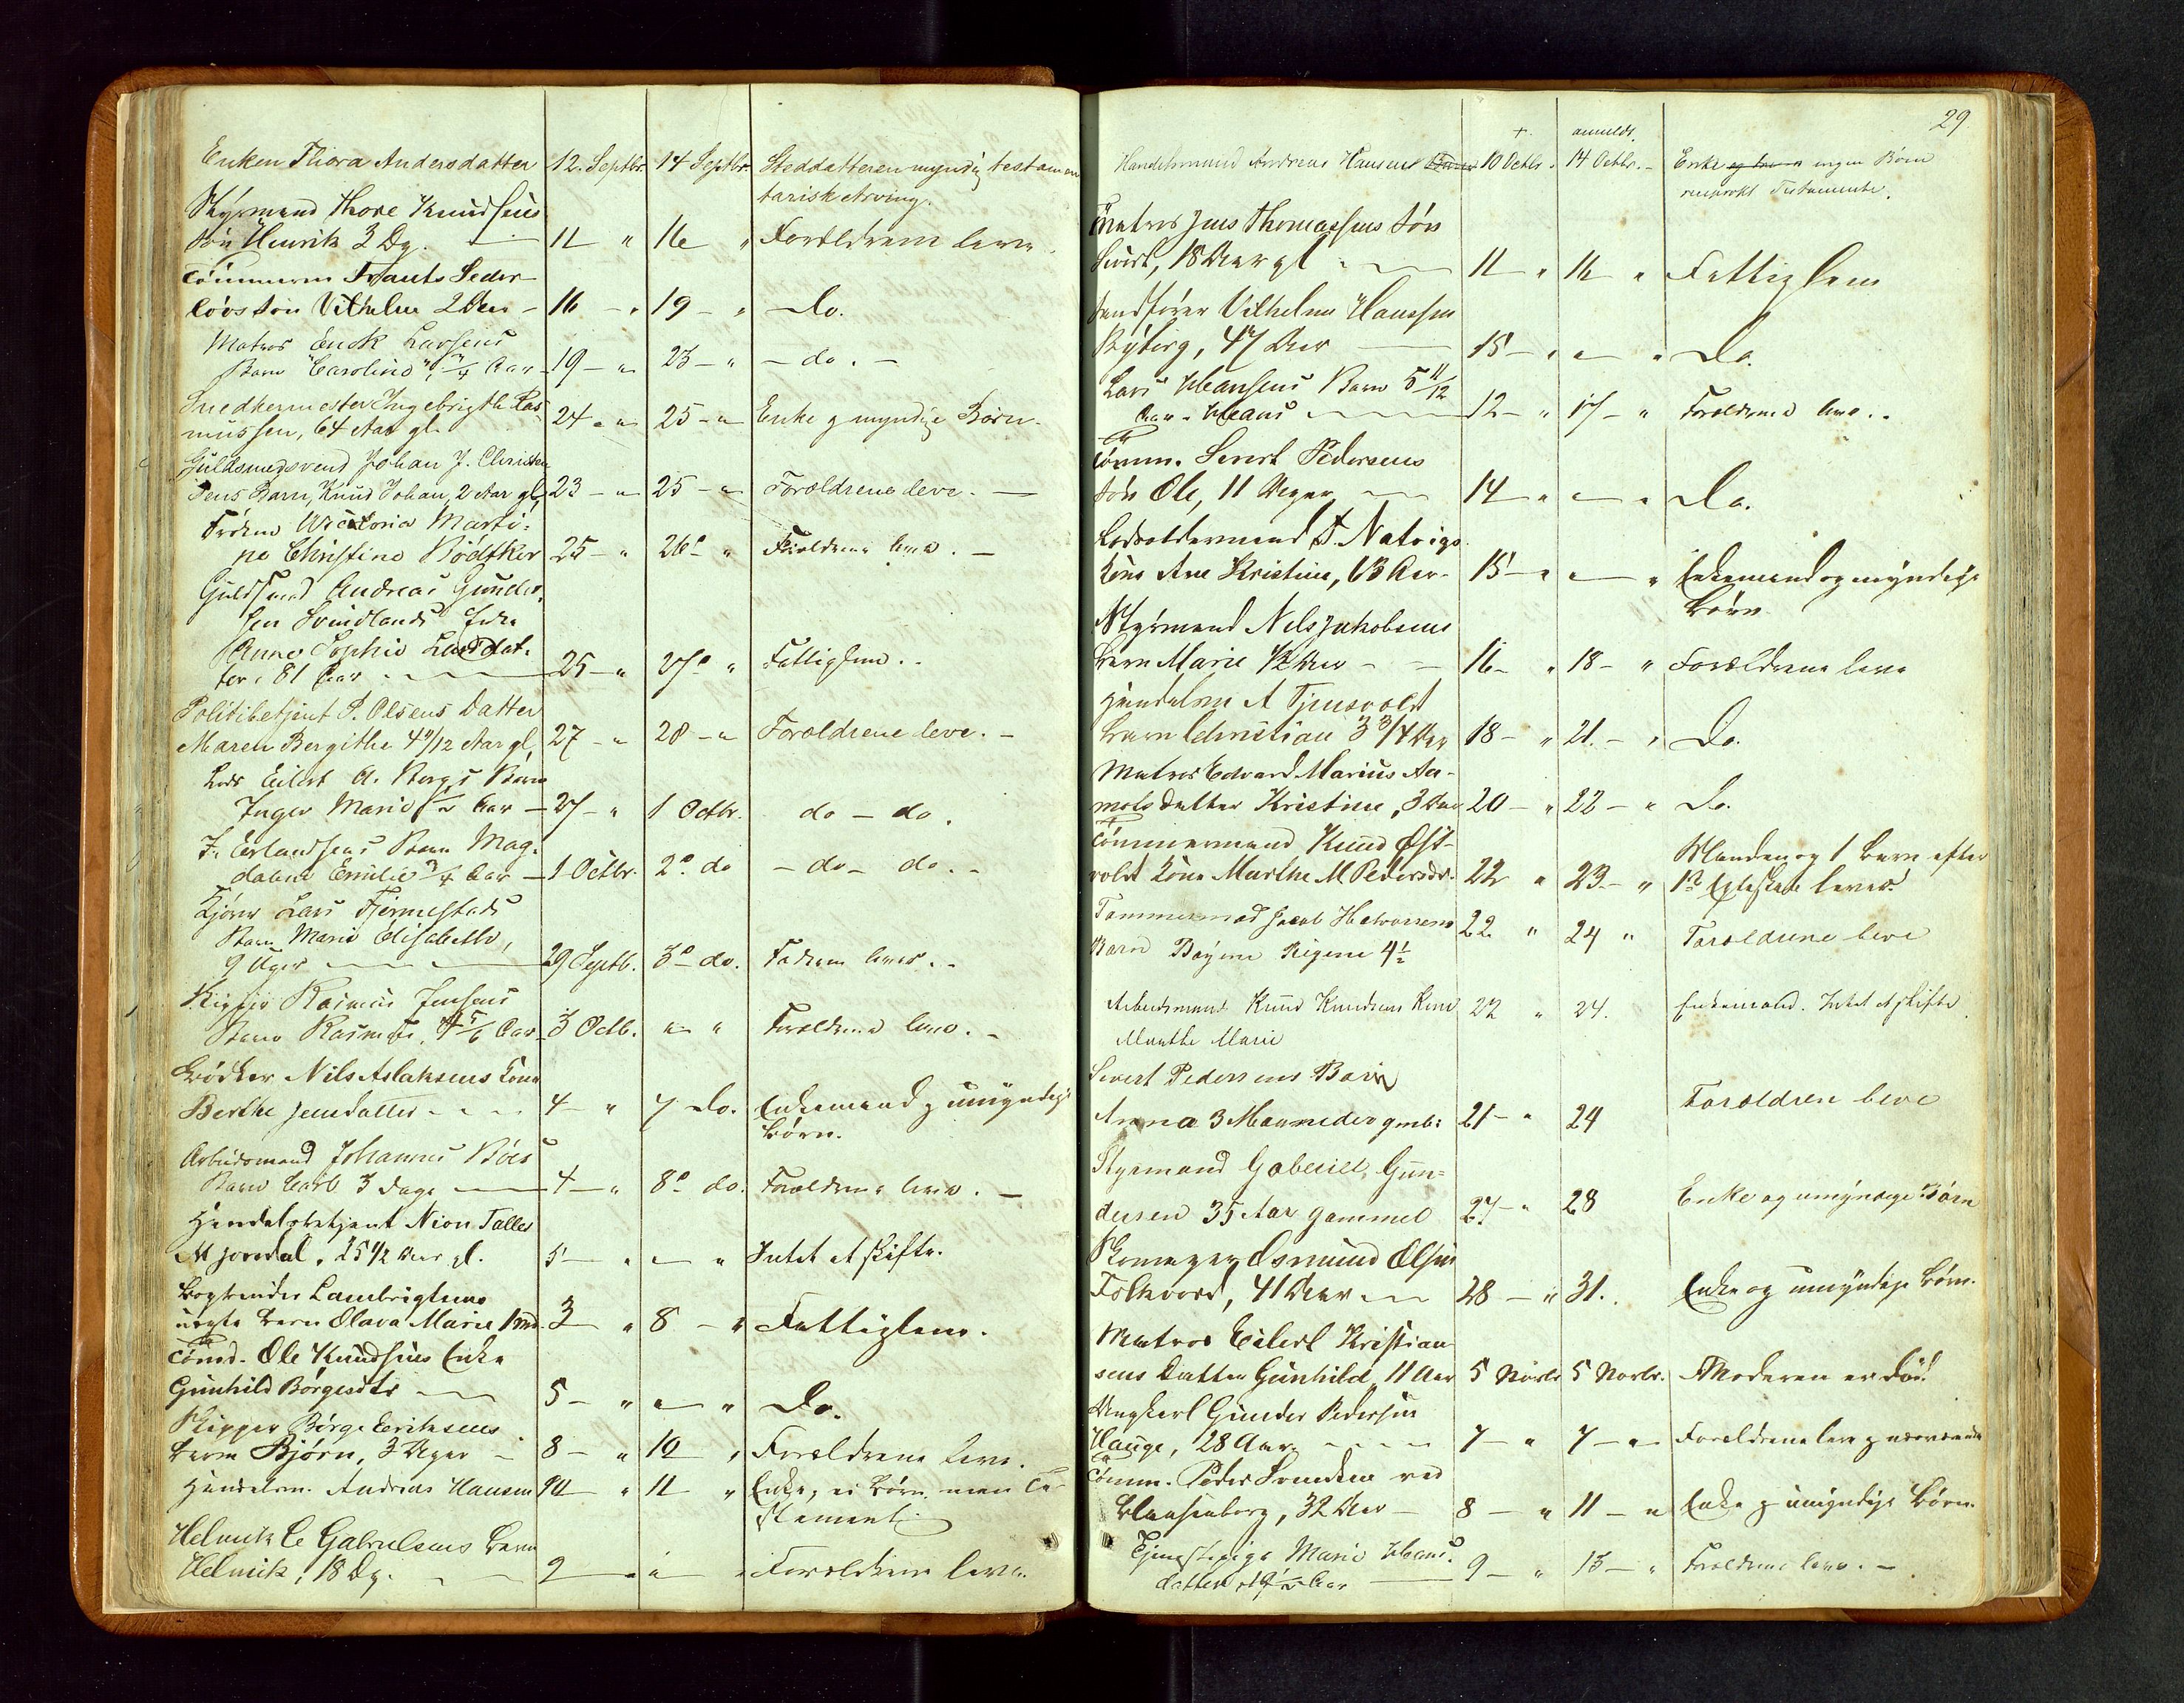 Enken Thora Andersdatter 12. Septbr. 14 Septbr. Steddatteren myndig testamen
tarisk Arving.
Styrmand Thore Knudsens
Søn Henrik 3 Dg. 11 " 16 " Forældrene leve
Tømmerm Frants Seder
løvs Søn Vilhelm 2 Aar 16 - " 19 - " Do.
Matros Enok Larsens
Barn "Caroline", 3/4 Aar 19 - " 23 - " - do. -
Snedkermester Ingebrigth Ras
mussen, 64 Aar gl. 24 - " 25 - " Enke og myndige Børn.
Guldsmedsvend Johan J. Christen
sens Barn, Knud Johan, 2 Aar gl. 23 - " 25 - " Forældrene leve. -
Frøken Victoria Marti-
ne Christine Bødtker 25 - " 26 " Forældrene leve. -
Guldsmed Andreas Gunder-
sen Svindlands Enke
Anne Sophie Larsdat-
ter, 81 Aar 25 - " 27 " Fattiglem. -
Politibetjent P. Olsens Datter
Maren Bergithe 4 9/12 Aar gl. 27 - " 28 - " Forældrene leve. -
Lods Eilert A. Bergs Barn
Inger Marie 1/2 Aar 27 - " 1 Octbr. do - do.
F. Erlandsens Barn Mag-
dalene Emilie 3/4 Aar 1 Octbr. 2 do - do - do. -
Kjører Lars Fjermestads
Barn Marie Elisabeth,
9 Uger 29 Septb. 3 do. Faderen lever. -
Skipper Rasmus Jensens
Barn Rasmus, 4 5/6 Aar 3 Octb. " " Forældrene leve. -
Bødker Nils Aslaksens Kone
Berthe Jensdatter 4 " 7 Do. Enkemand og umyndige
Børn.
Arbeidsmand Johannes Bøes
Barn Carl 3 Dage 4 - " 8 do. Forældrene leve. -
Handelsbetjent Nion Talles
Mjøndal, 25 1/2 Aar gl. 5 - " - " Intet at skifte.
Bogbinder Lambrigtsens
uægte Barn Olava Marie 1 Md. 3 " 8 - " Fattiglem.
Tømd. Ole Knudsens Enke
Gunhild Børgesdtr 5 - " - " Do.
Skipper Børge Eeriksens
Barn Bjørn, 3 Uger 8 - " 10 " Forældrene leve.
Handelsm. Andreas Hansen 10 " 11 " Enke, ei Børn, men Te-
stament
Helmik E Gabrielsens Barn
Helmik, 18 Dg. 9 " " Forældrene leve.
29
+ anmeldt.
Handelsmand Andreas Hansens 10 Octbr. 14 Octbr. - Enke og ingen Børn
reciprokt Testamente.
Matros Jens Thomassens Søn
Sivert, 18 Aar gl 11 " 16 " Fattiglem
Sandfører Vilhelm Hansen
Ryberg, 47 Aar 15 - " - " Do.
Lars Hansens Barn 5 11/12
Aar, Hans 12 - " 17 - " Forældrene leve. -
Tømm. Sivert Pedersens
Søn Ole, 11 Uger 14 " - " Do.
Lodsoldermand T. Natvigs
Kone Ane Kristine, 63 Aar. 15 - " - " Enkemand og myndige
Børn.
Styrmand Nels Jakobsens
Barn Marie 1/2 Aar 16 - " 18 - " Forældrene leve
Handelsm A Tjensvold
Barn Christian 3 3/4 Aar 18 - " 21. - " Do.
Matros Edvard Marius Aa-
mots Datter Kristine, 3 Aar 20 - " 22 - " Do.
Tømmermand Knud Øst-
vold Kone Marthe M Pedersdr. 22 " 23 - " Manden og 1 Barn efter
1ste Egteskab lever.
Tømmermand Jacob Halvorsens
Barn Børgine Regine 4 1/2 22 " 24 " Forældrene leve
Arbeidsmand Knud Knudsens Kone
Marthe Marie 22 " 24. Enkemand. Intet at skifte
Sivert Pedersens Barn
Anna 3 Maaneder gml: 21 - " 24 Forældrene leve
Styrmand Gabriel Gun=
dersen 35 Aar gammel 27 - " 28 Enke og umyndige Børn
Skomager Osmund Olsen
Folkvord, 41 Aar 28 - " 31. Enke og umyndige Børn.
Matros Eilert Kristian
sens Datter Gunhild, 11 Aar 5 Novbr 5 Novbr. Moderen er død!
Ungkarl Gunder Pedersen
Hauge, 28 Aar. 7 - " 7 - " Forældrene leve og nærværende
Tømm. Peder Svendsen ved
Blaasenborg, 32 Aar 8 - " 11 - " Enke og umyndige Børn.
Tjenestepige Marie Hans-
datter, 19 1/2 Aar 9 - " 13 - " Forældrene leve. -